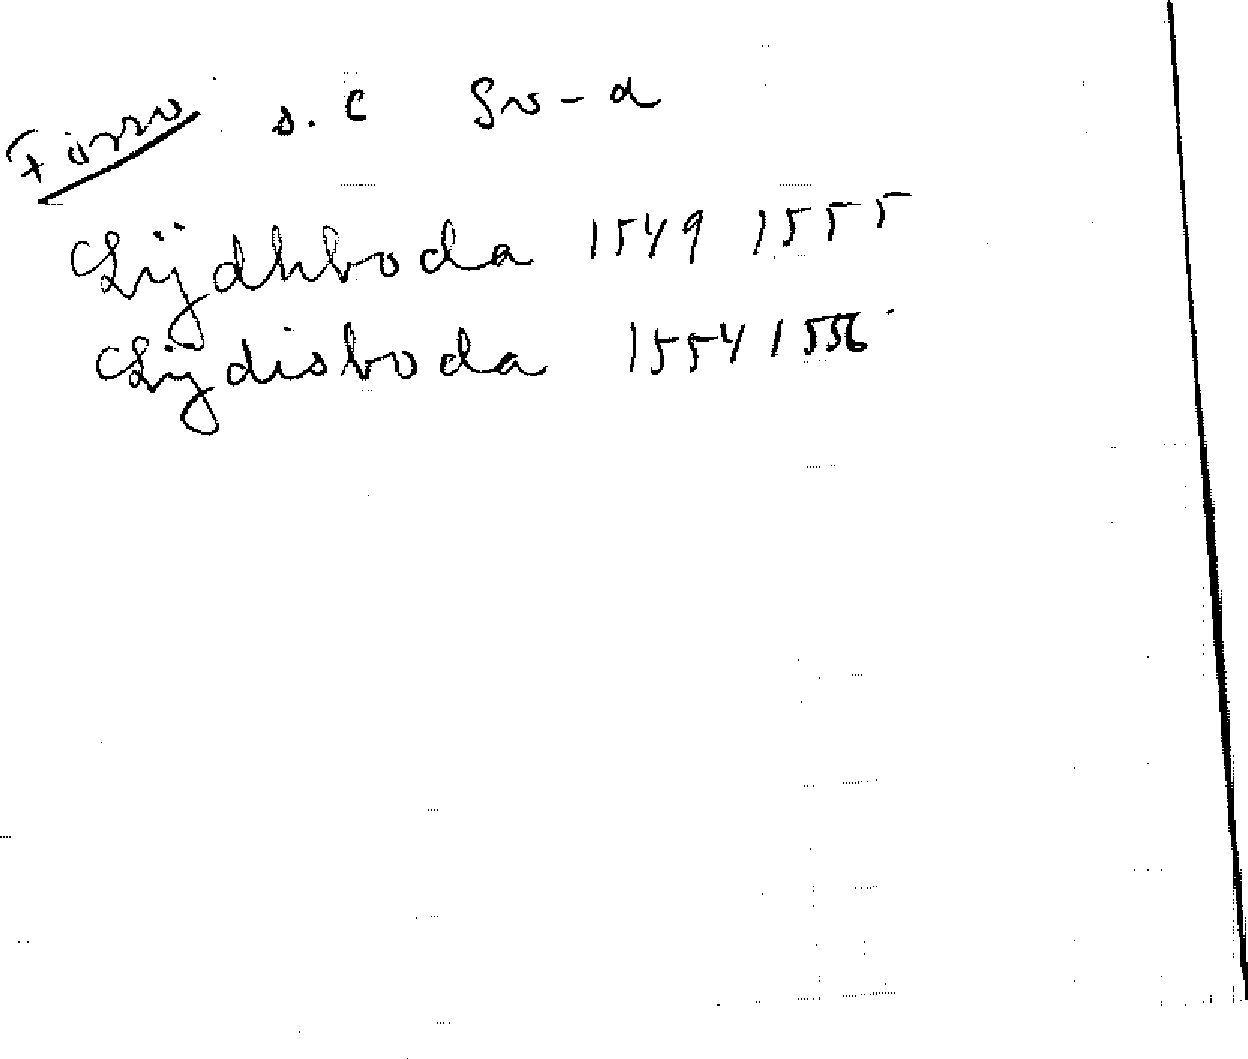 Försv s. C Sv-a
Lijdhboda 1549 1555
Lijdisboda 1554 1556